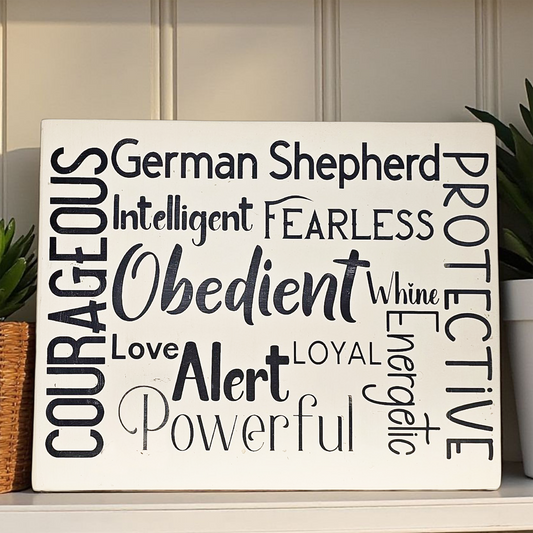 COURAGEOUS
German Shepherd
PROTECTiVE
Intelligent FEARLESS
Obedient Whine
Energetic
Love Alert LOYAL
Powerful